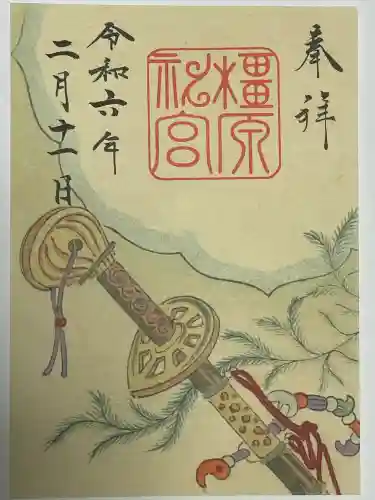 奉拝
橿原神宮
令和六年
二月十一日